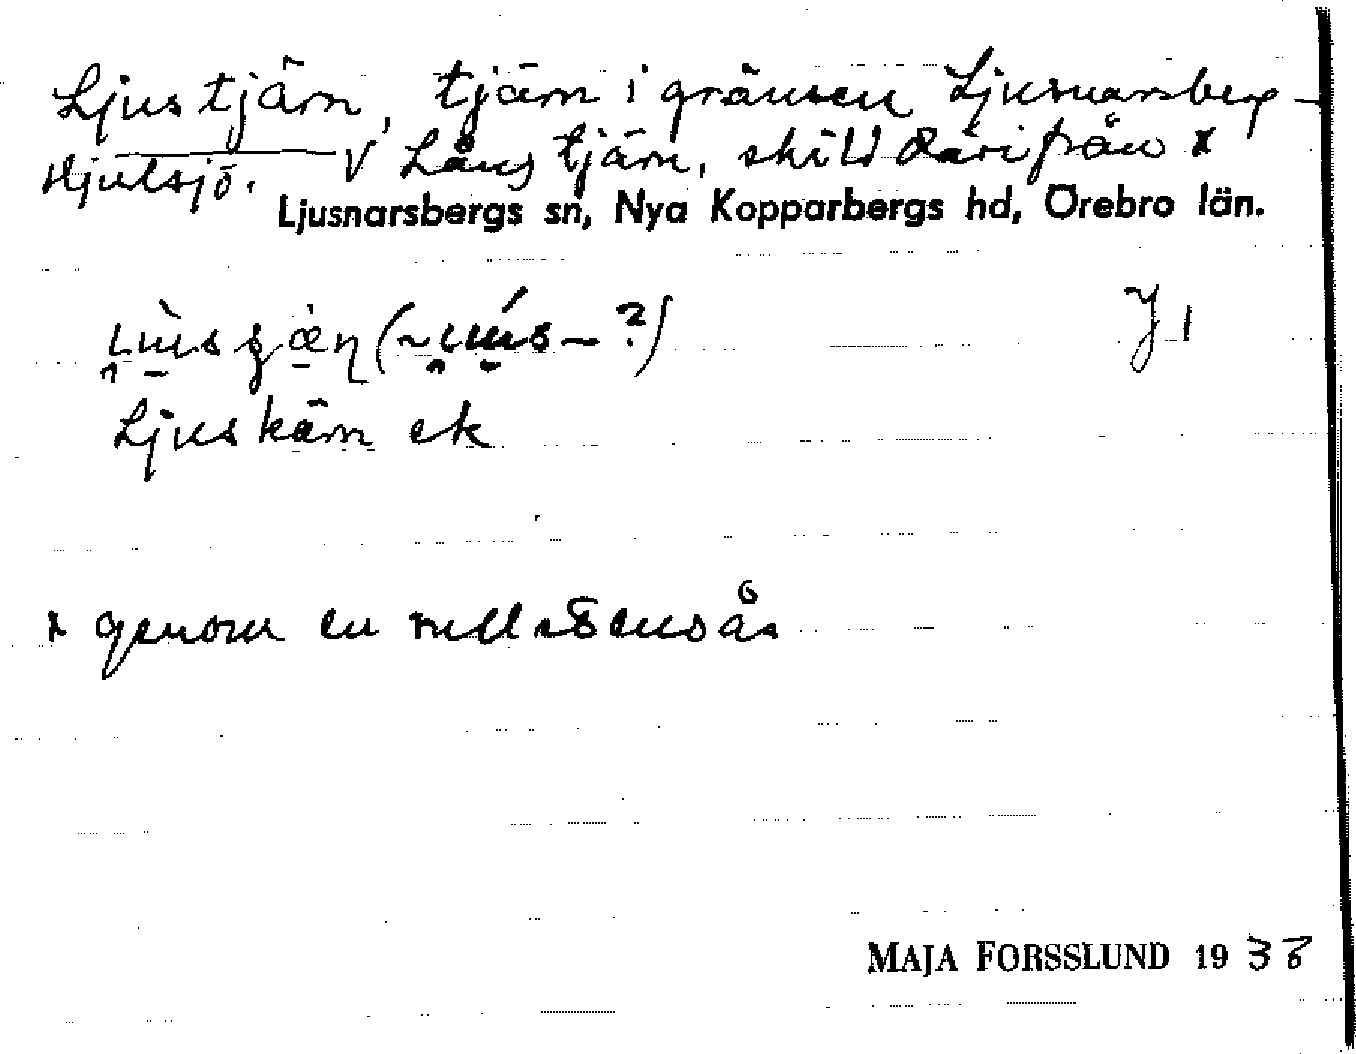 Ljustjärn, tjärn i gränsen Ljusnarsberg-
Hjulsjö. V Långtjärn, skild därifrån x
Ljusnarsbergs sn, Nya Kopparbergs hd, Örebro län.
J 1
Ljuskärn ek
x genom en mellanås
MAJA FORSSLUND 19